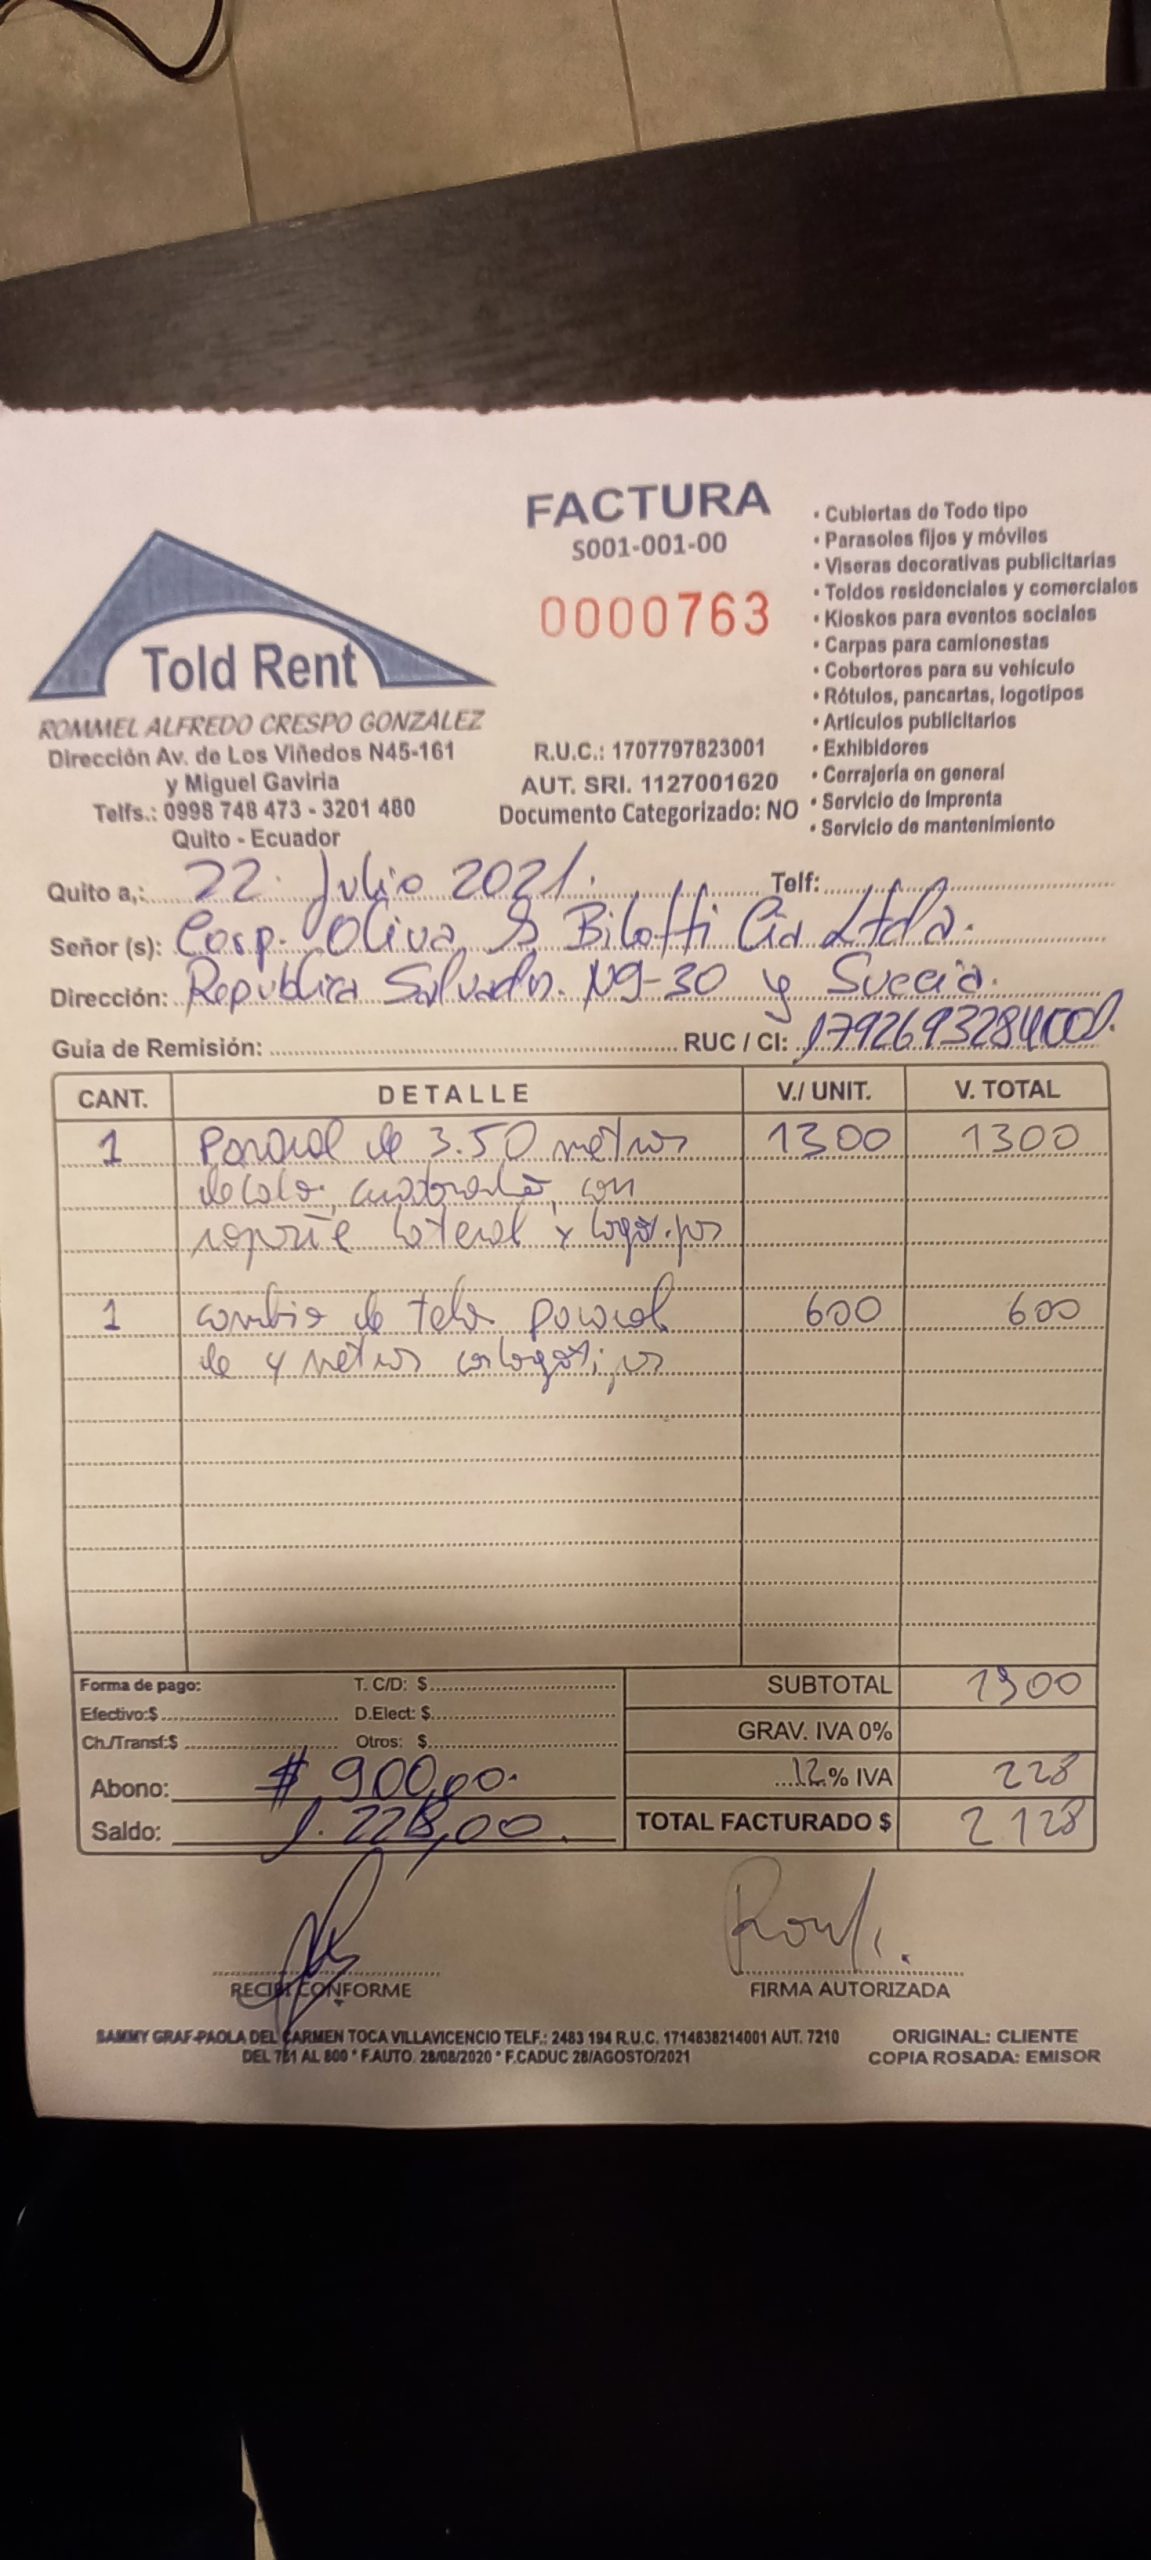 FACTURA
S001-001-00
0000763
Told Rent
ROMMEL ALFREDO CRESPO GONZALEZ
Dirección Av. de Los Viñedos N45-161
y Miguel Gaviria
Telfs.: 0998 748 473 - 3201 480
Quito - Ecuador
R.U.C.: 1707797823001
AUT. SRI. 1127001620
Documento Categorizado: NO
• Cubiertas de Todo tipo
• Parasoles fijos y móviles
• Viseras decorativas publicitarias
• Toldos residenciales y comerciales
• Kioskos para eventos sociales
• Carpas para camionestas
• Cobertores para su vehículo
• Rótulos, pancartas, logotipos
• Artículos publicitarios
• Exhibidores
• Cerrajería en general
• Servicio de Imprenta
• Servicio de mantenimiento
Quito a,: 22 Julio 2021. Telf:
Señor (s): Corp. Oliva & Bilotti Cia Ltda.
Dirección: Republica Salvador. N9-30 y Suecia.
Guía de Remisión: RUC / CI: 1792693284001.
CANT. DETALLE V./ UNIT. V. TOTAL
1 Parasol de 3.50 metros 1300 1300
de lado, cuadrado, con
soporte lateral y logotipos
1 cambio de tela parasol 600 600
de 4 metros con logotipos
Forma de pago: T. C/D: $ SUBTOTAL 1900
Efectivo:$ D.Elect: $ GRAV. IVA 0%
Ch./Transf:$ Otros: $
Abono: $ 900,00. 12 % IVA 228
Saldo: 1.228,00. TOTAL FACTURADO $ 2128
RECIBI CONFORME
FIRMA AUTORIZADA
SAMMY GRAF-PAOLA DEL CARMEN TOCA VILLAVICENCIO TELF.: 2483 194 R.U.C. 1714838214001 AUT. 7210
DEL 751 AL 800 * F.AUTO. 28/08/2020 * F.CADUC 28/AGOSTO/2021
ORIGINAL: CLIENTE
COPIA ROSADA: EMISOR